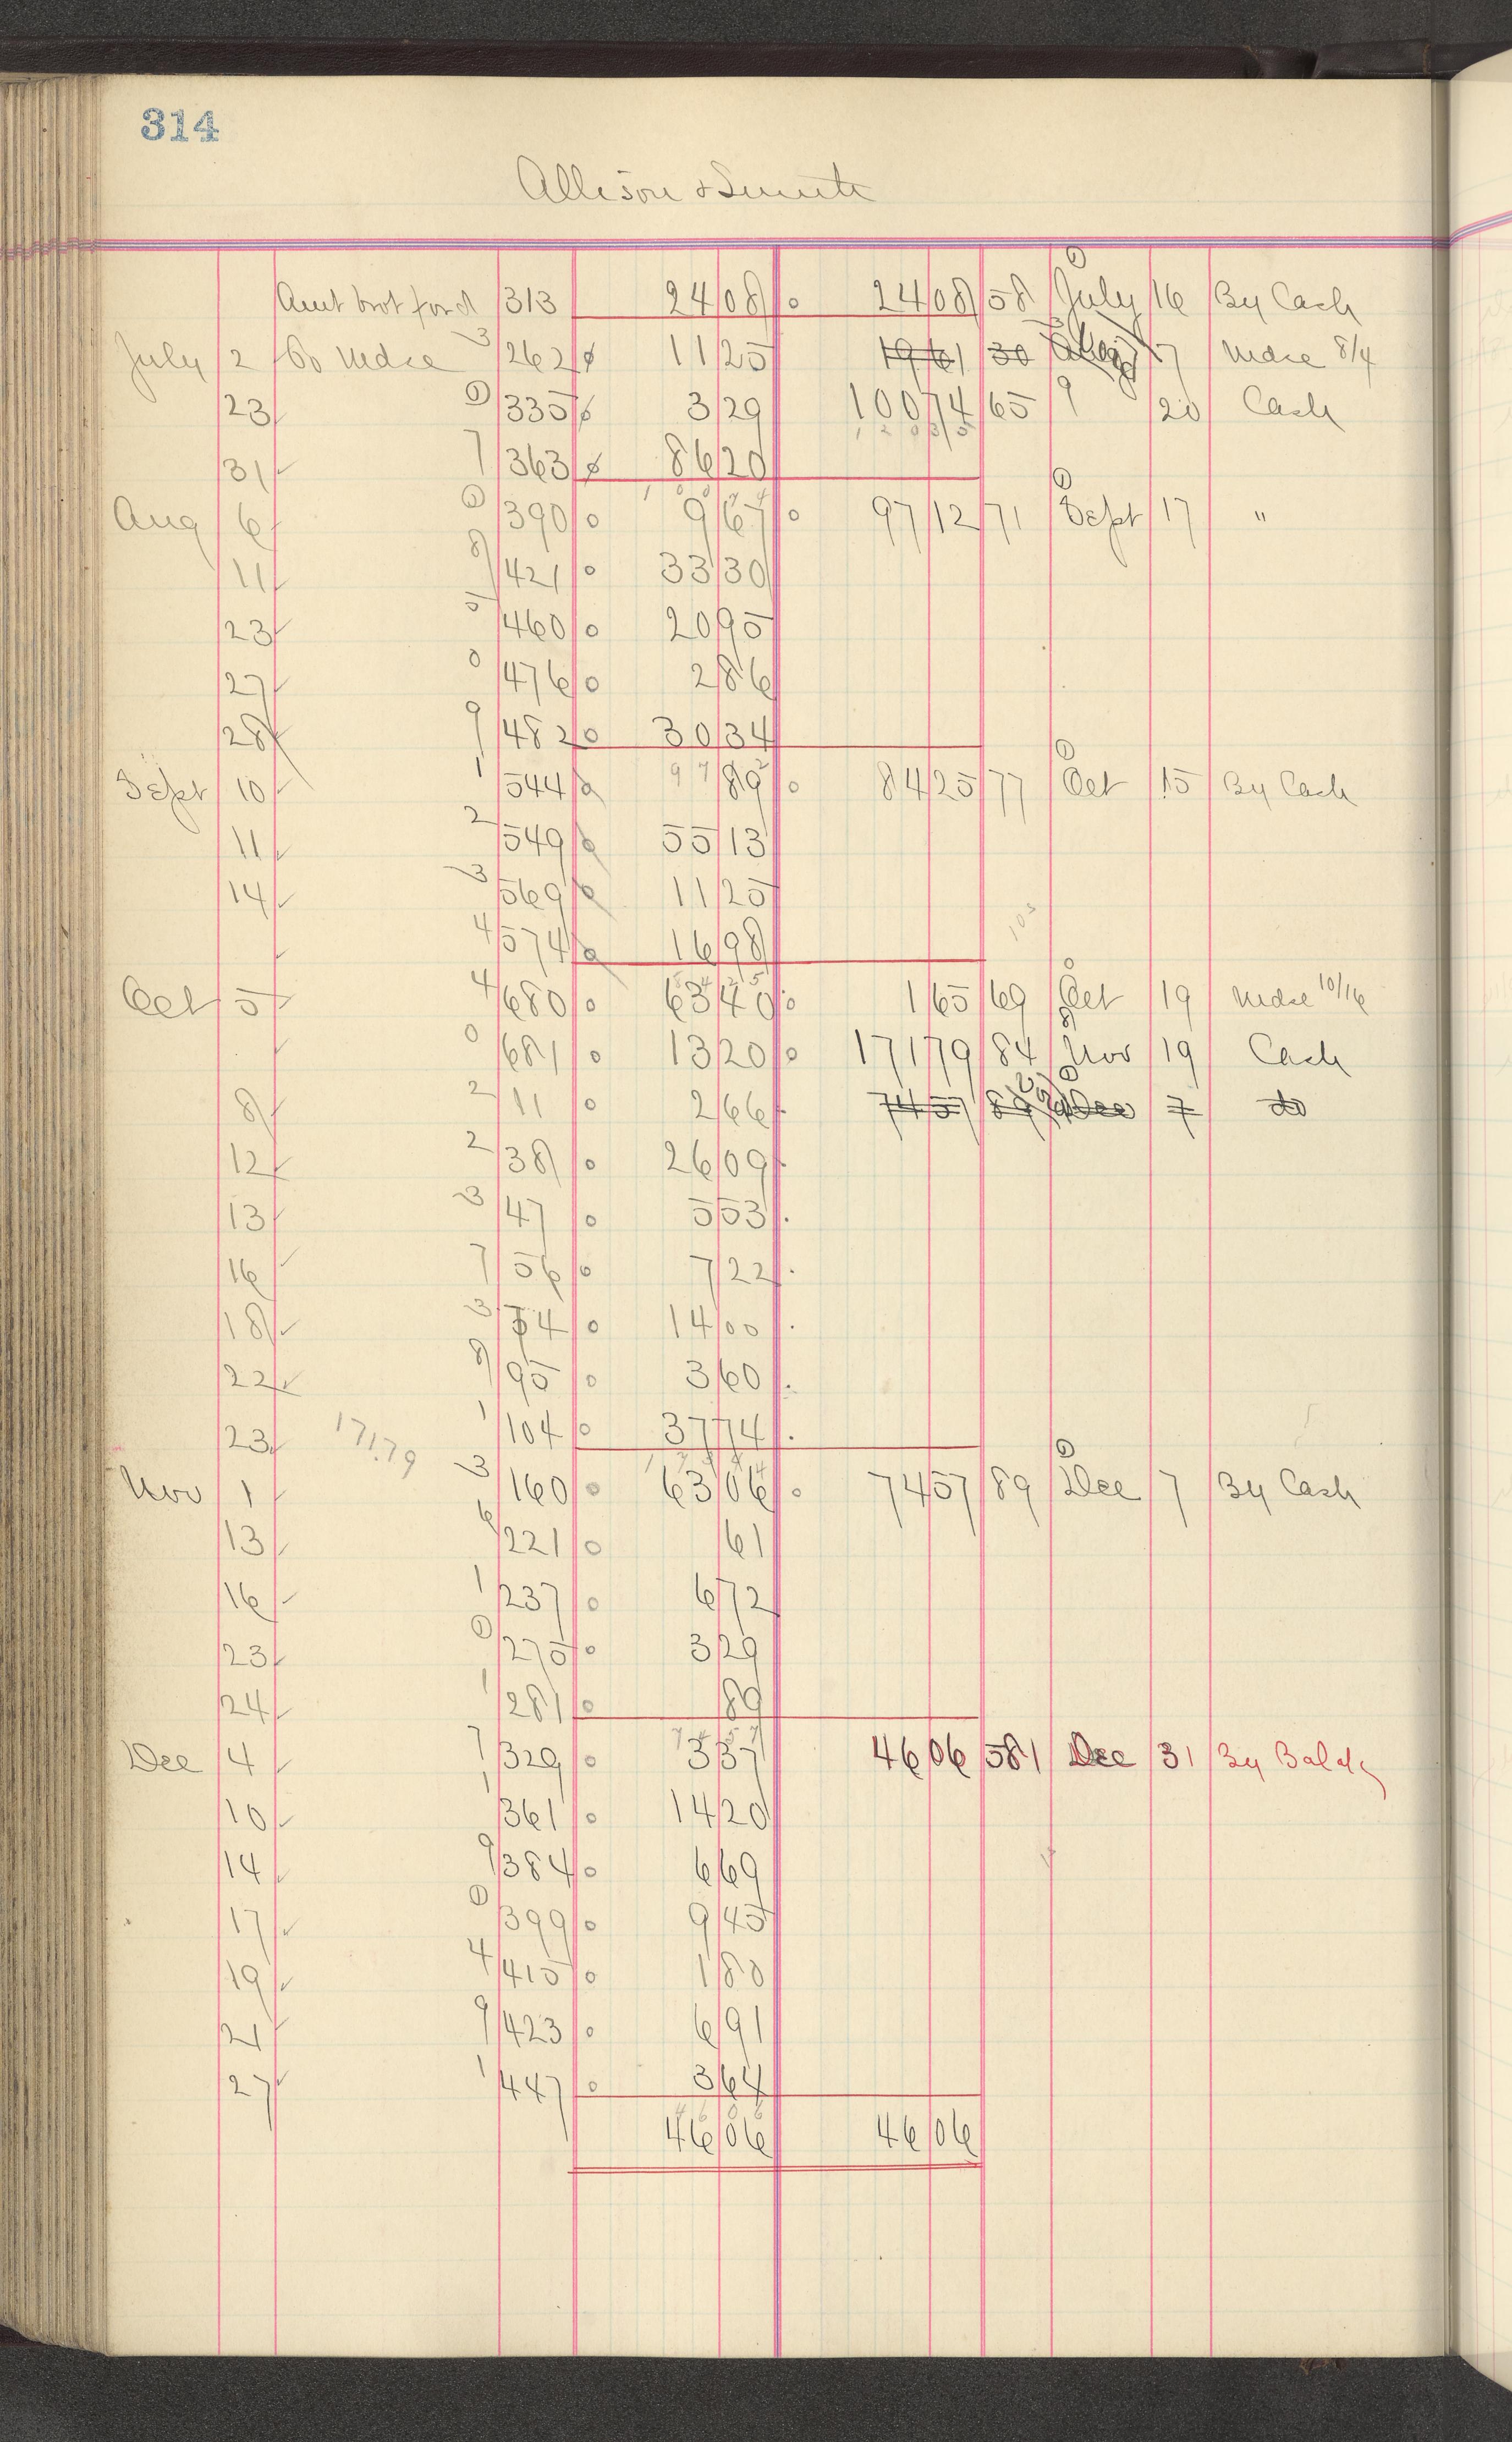 314
Allison &
Amt brot ford 313 24 08 0 24 08 58 July 16 By Cash
July 2 To Mdse 3 262 11 25 19 61 30 7 Mdse 8/4
23 0 335 3 29 100 74 65 9 20 Cash
31 7 363 86 20
Aug 6 0 390 0 9 67 0 97 12 71 Sept 17 "
11 8 421 0 33 30
23 5 460 0 20 95
27 0 476 0 2 86
28 9 482 0 30 34
Sept 10 1 544 89 0 84 25 77 Oct 15 By Cash
11 2 549 55 13
14 3 569 11 25
4 574 16 98
Oct 5 4 680 0 63 40 0 1 65 69 Oct 19 Mdse 10/16
0 681 0 13 20 0 171 79 84 Nov 19 Cash
8 2 11 0 2 66 74 57 89 Dec 7 do
12 2 38 0 26 09
13 3 47 0 5 53
16 7 56 0 7 22
18 3 74 0 14 00
22 8 95 0 3 60
23 171.79 1 104 0 37 74
Nov 1 3 160 0 63 06 0 74 57 89 Dec 7 By Cash
13 6 221 0 61
16 1 237 0 6 72
23 0 275 0 3 29
24 1 281 0 89
Dec 4 7 329 0 3 37 46 06 581 Dec 31 By Balce
10 1 361 0 14 20
14 9 384 0 6 69
17 0 399 0 9 45
19 4 415 0 1 80
21 9 423 0 6 91
27 1 447 0 3 64
46 06 46 06